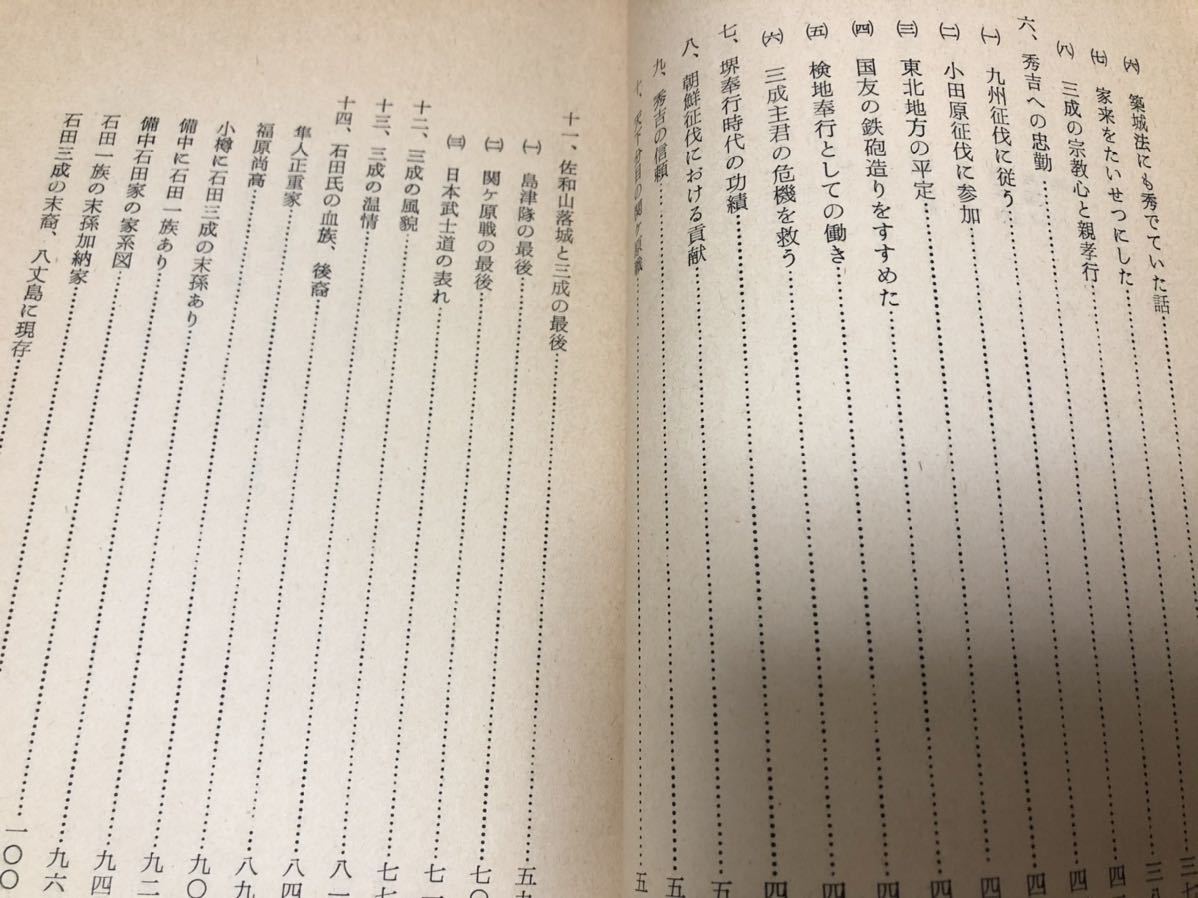 ㈥ 築城法にも秀でていた話……三七
㈦ 家来をたいせつにした……三八
㈧ 三成の宗教心と親孝行……四
六、秀吉への忠勤……四
㈠ 九州征伐に従う……四
㈡ 小田原征伐に参加……四
㈢ 東北地方の平定……四
㈣ 国友の鉄砲造りをすすめた……四
㈤ 検地奉行としての働き……四
㈥ 三成主君の危機を救う……四
七、堺奉行時代の功績……五
八、朝鮮征伐における貢献……五
九、秀吉の信頼……五
十一、佐和山落城と三成の最後……五九
㈠ 島津隊の最後……七〇
㈡ 関ケ原戦の最後……七一
㈢ 日本武士道の表れ
十二、三成の風貌……七七
十三、三成の温情
十四、石田氏の血族、後裔……八一
隼人正重家……八四
福原尚高……八九
小樽に石田三成の末孫あり……九〇
備中に石田一族あり……九二
備中石田家の家系図……九四
石田一族の末孫加納家……九六
石田三成の末裔、八丈島に現存……一〇〇